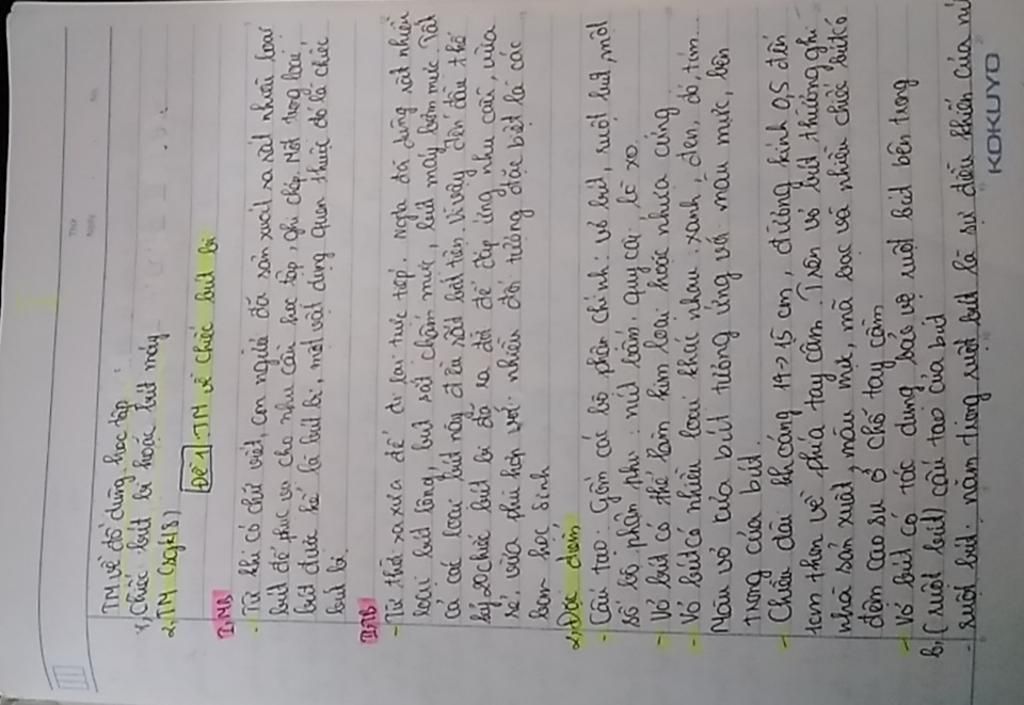 TM về đồ dùng học tập
1, Chiếc bút bi hoặc bút máy
2, TM (sgk/8)
Đề 1 TM về chiếc bút bi
I, MB
- Từ khi có chữ viết, con người đã sản xuất ra rất nhiều loại
bút để phục vụ cho nhu cầu học tập, ghi chép. Một trong loại
bút được kể là bút bi, một vật dụng quen thuộc đó là chiếc
bút bi.
II, TB
- Từ thời xa xưa để lại tiếp, người đã dùng rất nhiều
loại bút lông, bút sắt chấm mực, bút máy bơm mực. Tất
cả các loại bút này đều rất bất tiện. Vì vậy, đến đầu thế
kỷ 20 chiếc bút bi đã ra đời để đáp ứng nhu cầu, vừa
rẻ, vừa phù hợp với nhiều đối tượng đặc biệt là các
bạn học sinh
2, Đặc điểm
- Cấu tạo: Gồm các bộ phận chính: vỏ bút, ruột bút, một
số bộ phận phụ: nút bấm, quy cài, lò xo.
- Vỏ bút có thể làm kim loại hoặc nhựa cứng
- Vỏ bút có nhiều loại khác nhau: xanh, đen, đỏ, tím...
Màu vỏ của bút tương ứng với màu mực, bên
trong của bút.
- Chiều dài khoảng 14->15 cm, đường kính 0,5 đến
1cm thon về phía tay cầm. Trên vỏ bút thường ghi
nhà sản xuất, màu mực, mã bạc và nhiều chiếc bút có
đệm cao su ở chỗ tay cầm
- Vỏ bút có tác dụng bảo vệ ruột bút bên trong
b, (ruột bút) cấu tạo của bút
- ruột bút: nằm trong ruột bút là sự điều khiển của
KOKUYO